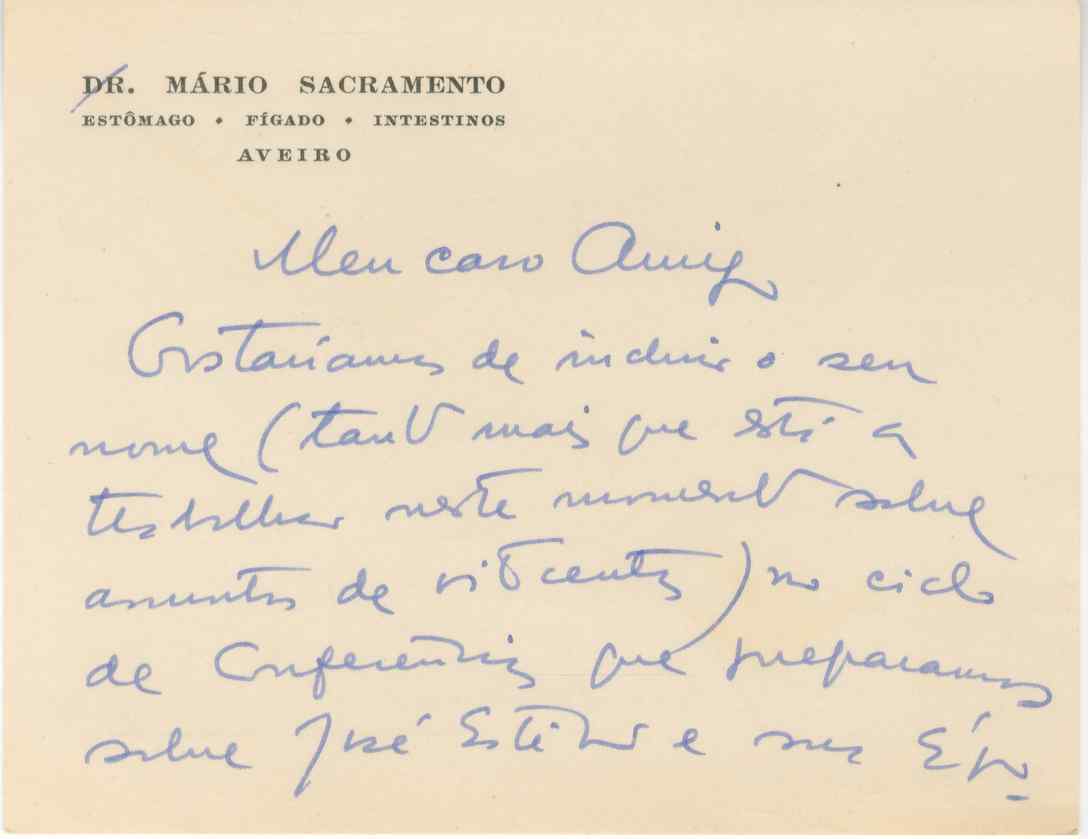 DR. MÁRIO SACRAMENTO
ESTÔMAGO • FÍGADO • INTESTINOS
AVEIRO
Meu caro Amigo
Gostaríamos de incluir o seu
nome (tanto mais que está a
trabalhar neste momento sobre
assuntos de oitocentos) no ciclo
de Conferências que preparamos
sobre José Estêvão e sua Épo-